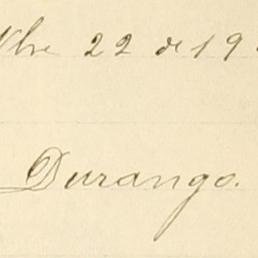 bre 22 de 19
Durango.